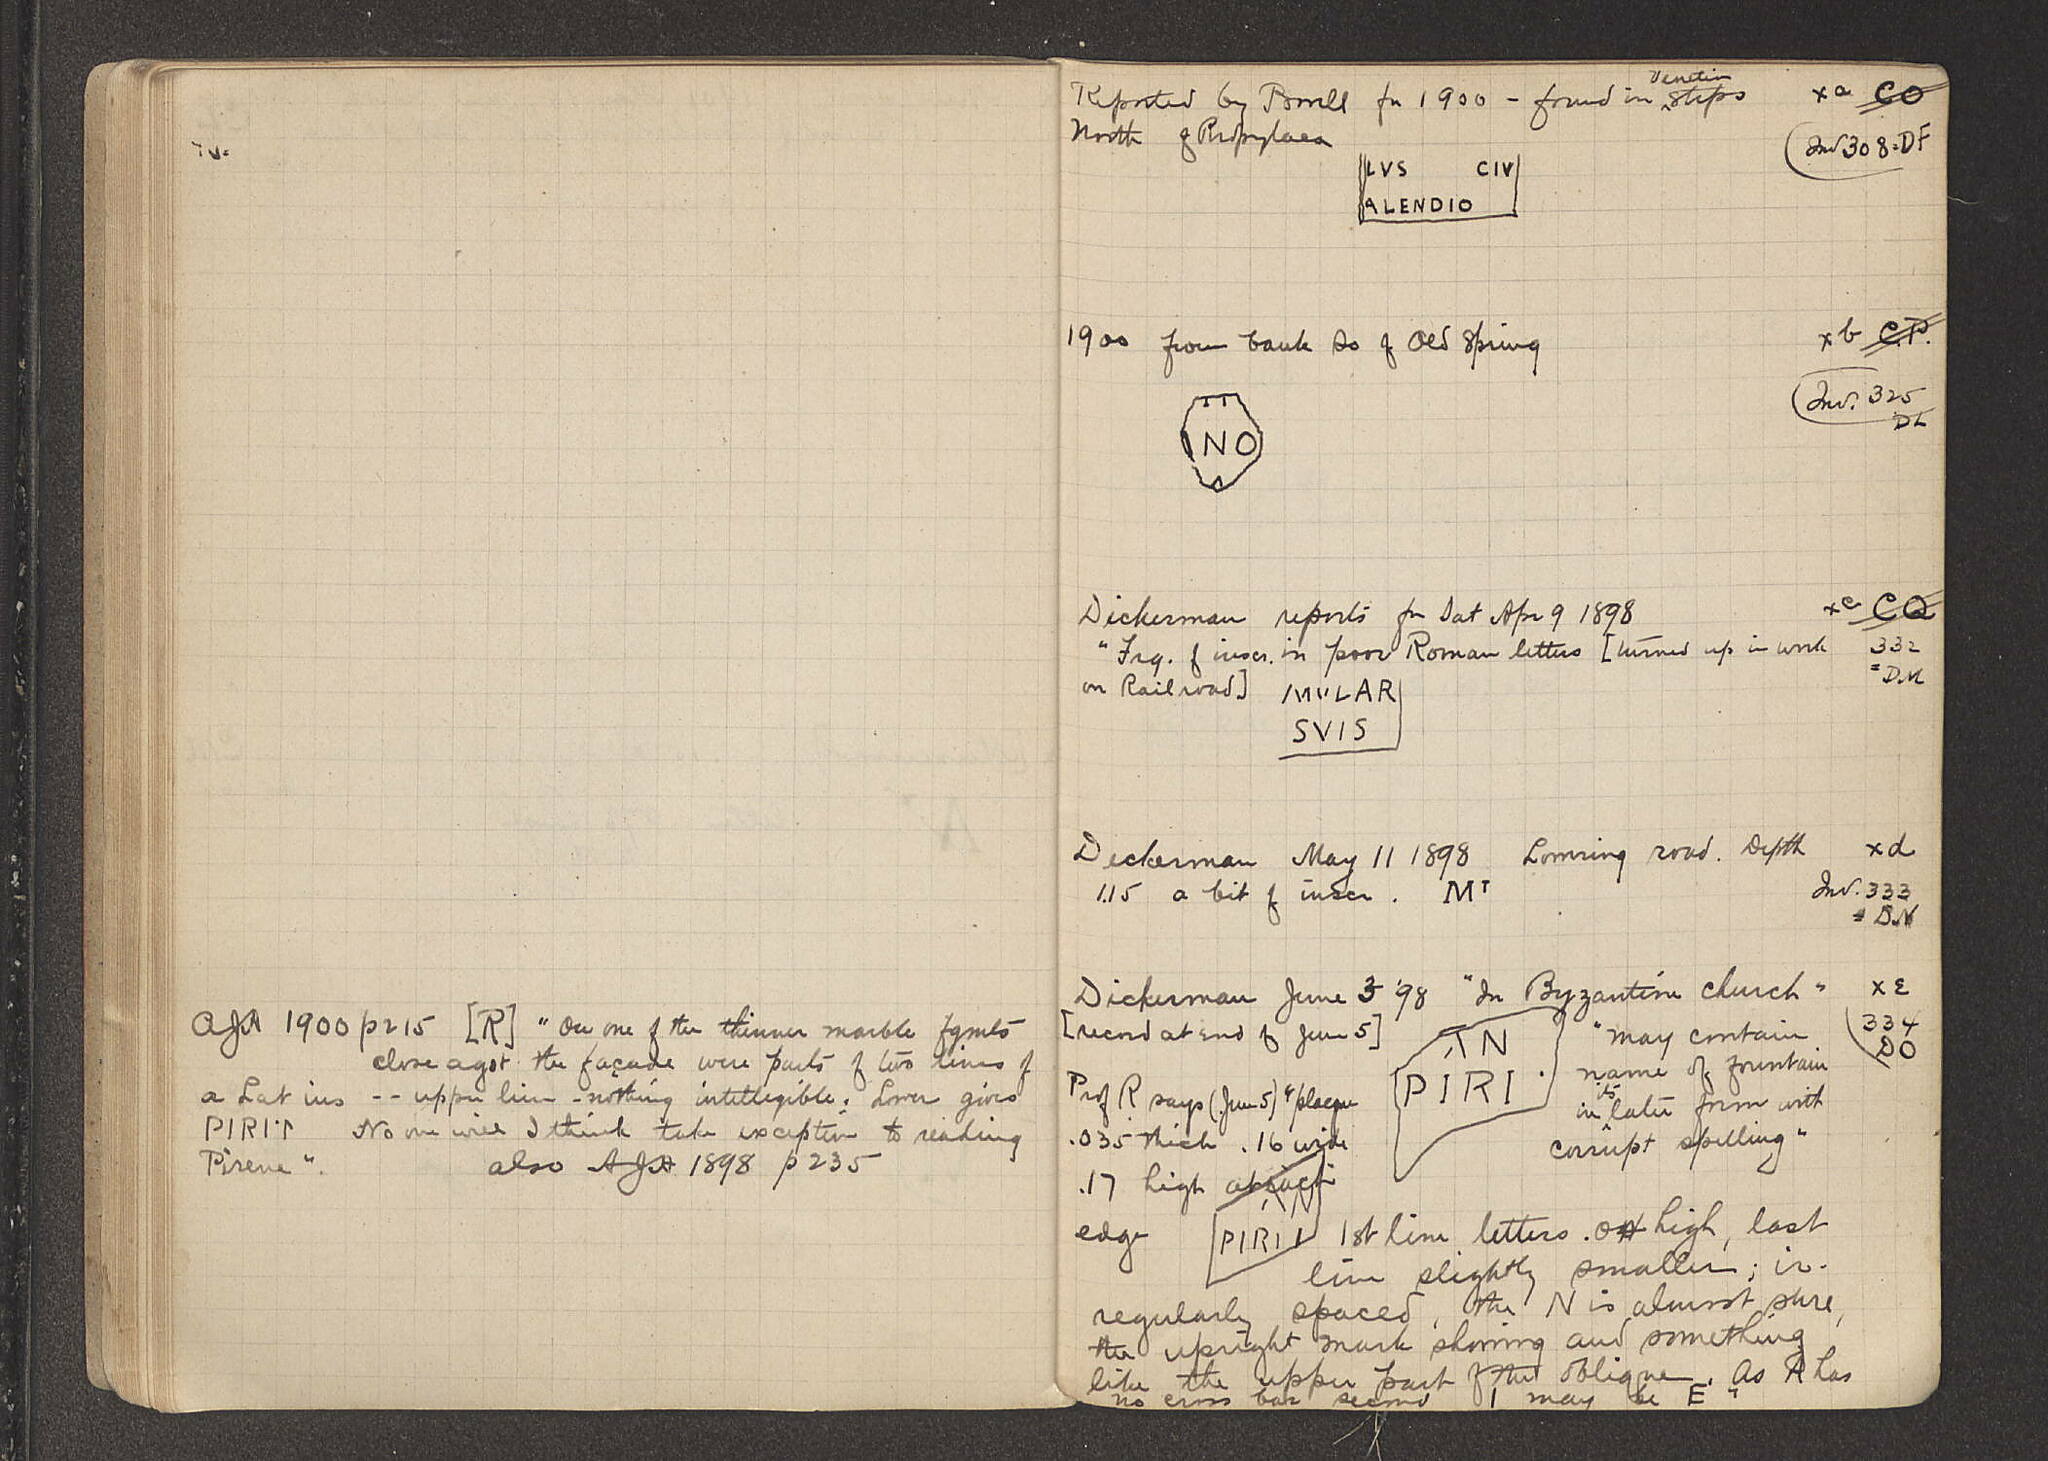 AJA 1900 p215 [R] "On one of the thinner marble fgmts
close agst the façade were parts of two lines of
a Lat ins -- upper line - nothing intelligible. Lower gives
PIRI No one will I think take exception to reading
Pirene".
also AJA 1898 p235
Reported by for 1900 - found in Venetian steps
North of Propylaea
xa CO
Inv 308=DF
LVS CIV
ALENDIO
1900 from bank So of Old Spring
xb C.P.
Inv. 325
DL
INO
Dickerman reports for Sat Apr 9 1898
xc CQ
"Frg. of inscr. in poor Roman letters [turned up in work
332
on Railroad]
=DM
LAR
SVIS
Dickerman May 11 1898 Lowering road. Depth
xd
1.15 a bit of inscr.
Inv. 333
= DN
Dickerman June 3 '98 "In Byzantine church"
xE
[record at end of June 5]
334
DO
N
PIRI
"may contain
name of fountain
in its later form with
corrupt spelling"
Prof R says (June 5) "plaque
.035 thick .16 wide
.17 high
edge
N
PIRI
1st line letters high, last
line slightly smaller; ir-
regularly spaced, the N is almost sure,
the upright mark showing and something
like the upper part of the oblique. As A has
no cross bar second I may be E"